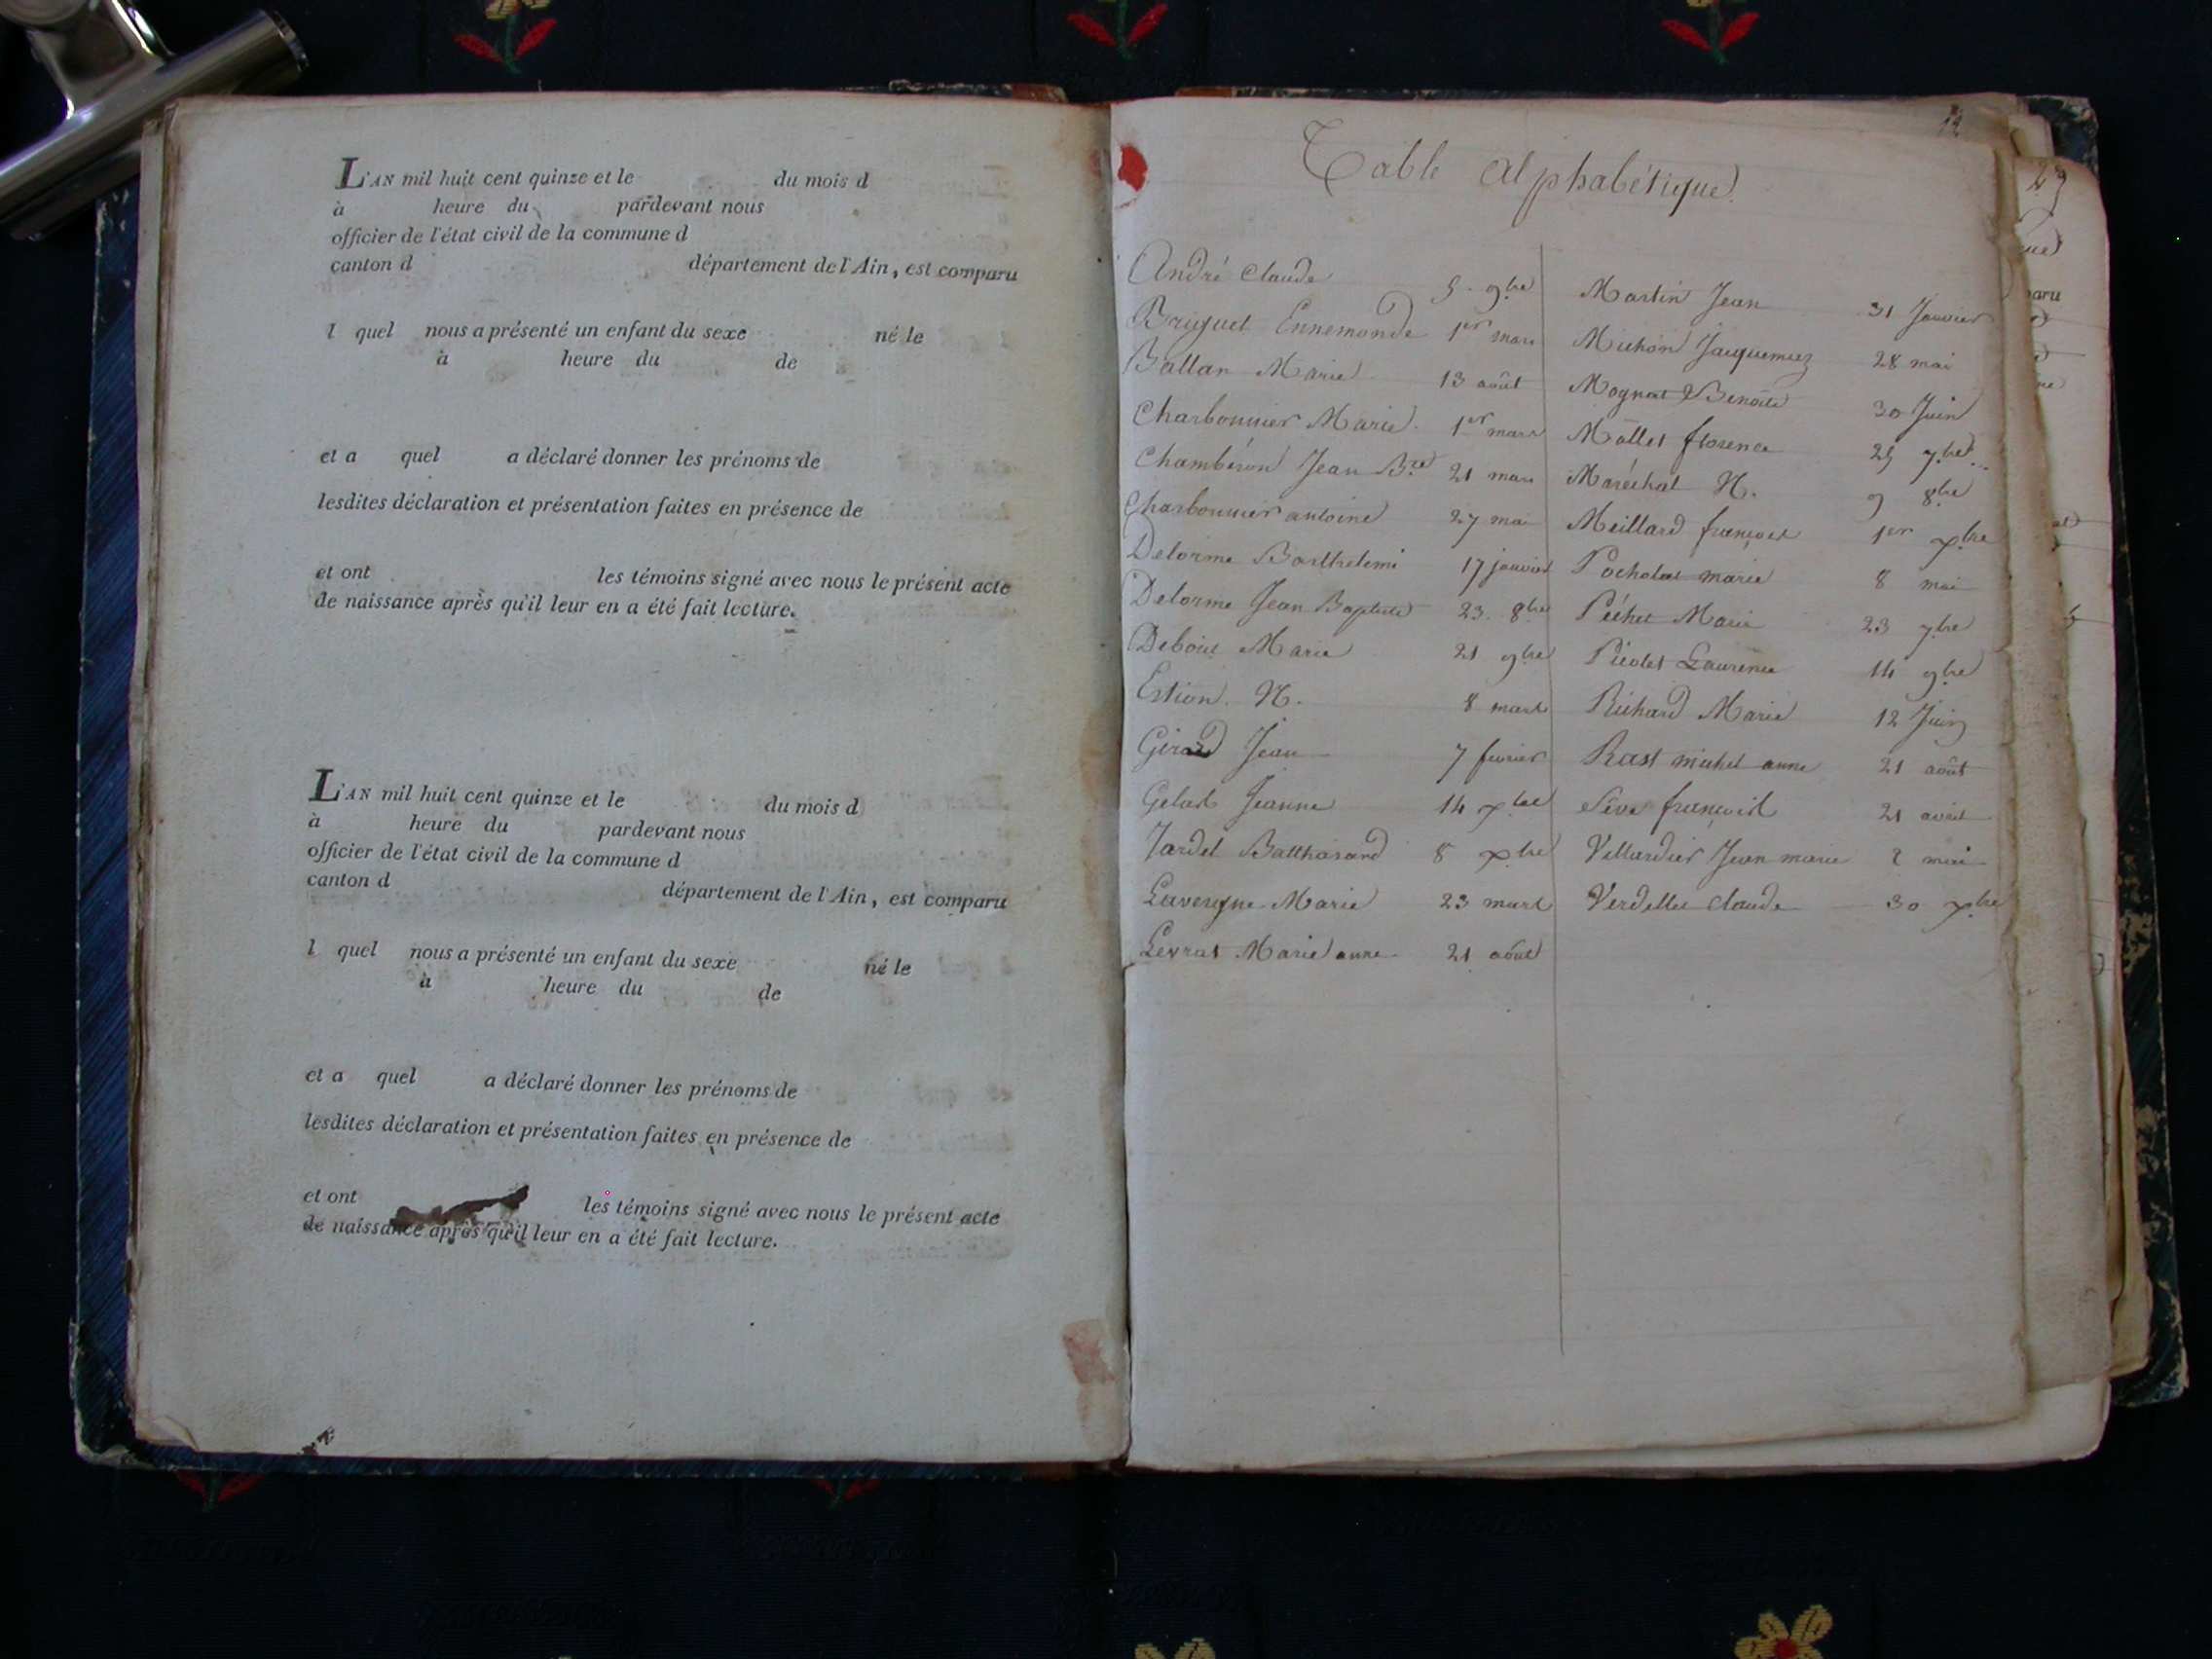 L'AN mil huit cent quinze et le du mois d
à heure du pardevant nous
officier de l'état civil de la commune d
canton d département de l'Ain, est comparu
l quel nous a présenté un enfant du sexe né le
à heure du de
et a quel a déclaré donner les prénoms de
lesdites déclaration et présentation faites en présence de
et ont les témoins signé avec nous le présent acte
de naissance après qu'il leur en a été fait lecture.
L'AN mil huit cent quinze et le du mois d
à heure du pardevant nous
officier de l'état civil de la commune d
canton d département de l'Ain, est comparu
l quel nous a présenté un enfant du sexe né le
à heure du de
et a quel a déclaré donner les prénoms de
lesdites déclaration et présentation faites en présence de
et ont les témoins signé avec nous le présent acte
de naissance après qu'il leur en a été fait lecture.
Table Alphabétique
André Claude 5 9bre
Briguet Ennemonde 1er mars
Ballan Marie 13 août
Charbonnier Marie 1er mars
Chambéron Jean Bte 21 mars
Charbonnier antoine 27 mai
Delorme Barthelemi 17 janvier
Delorme Jean Baptiste 23 8bre
Marie 21 9bre
Estion N. 8 mars
Girard Jean 7 fevrier
Jeanne 14 xbre
Jardet Balthasard 8 xbre
Lavergne Marie 23 mars
Levrat Marie anne 21 août
Martin Jean 31 Janvier
Michon 28 mai
Mognat Benoite 30 Juin
Mollet florence 25 7bre
Maréchal N. 9 8bre
Meillard françois 1er xbre
Pocholat marie 8 mai
Péchet Marie 23 7bre
Picolet Laurence 14 9bre
Richard Marie 12 Juin
Rast michel anne 21 août
Sève françois 21 avril
Villardier Jean marie 2 mai
Verdellet claude 30 xbre
29
aru